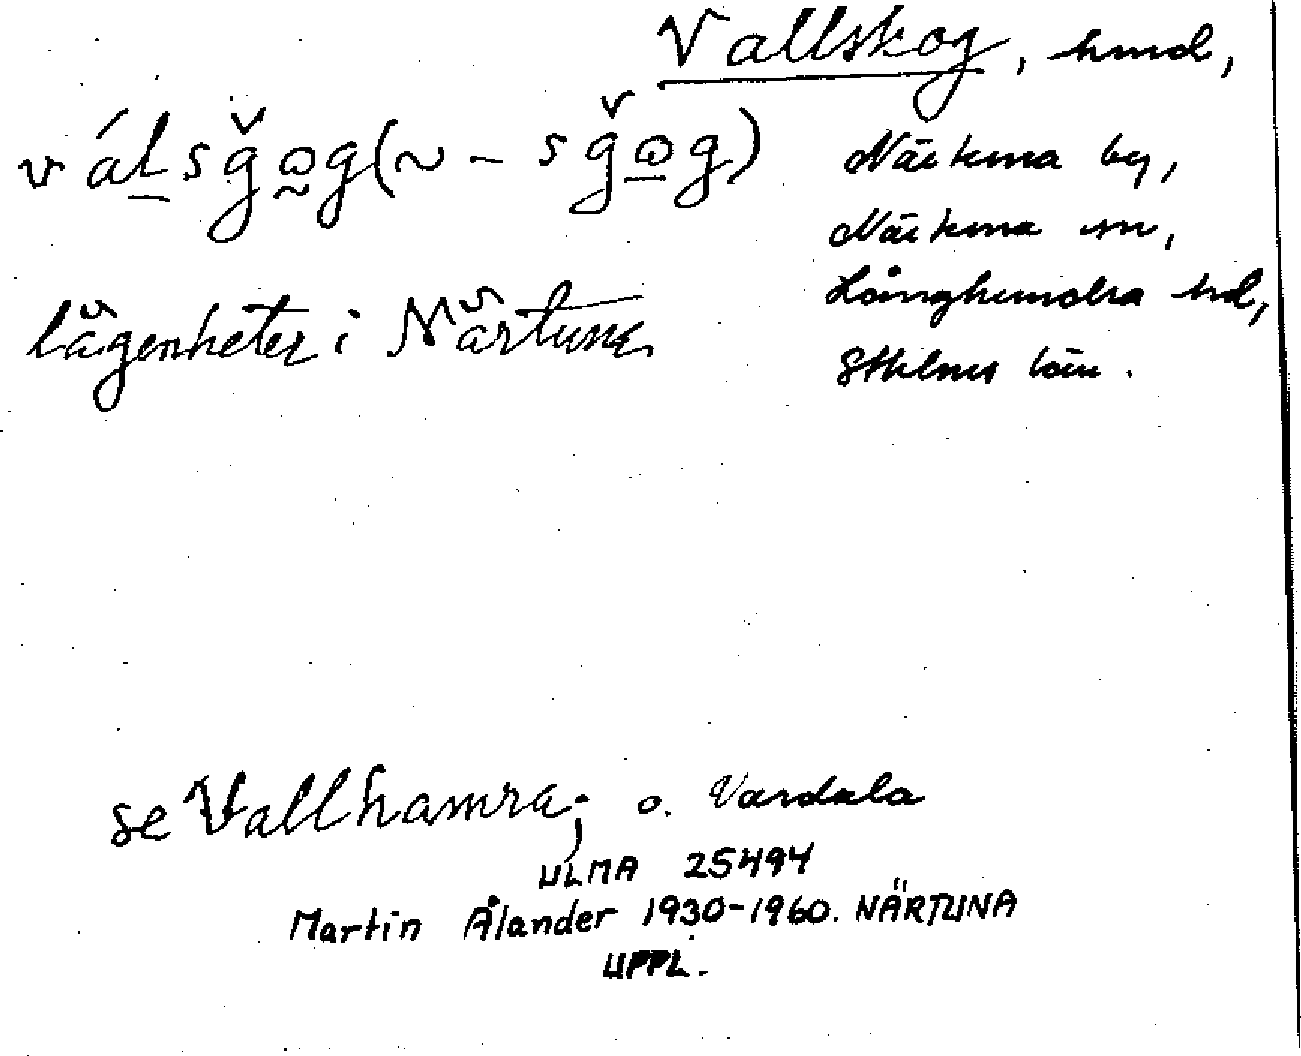 Vallskog, hmd,
válsğog(~ - sğog)
Närtuna by,
Närtuna sn,
lägenheter i Närtuna
Långhundra hd,
Sthlms län.
se Vallhamra; o. Vardala
ULMA 25494
Martin Ålander 1930-1960. NÄRTUNA
UPPL.